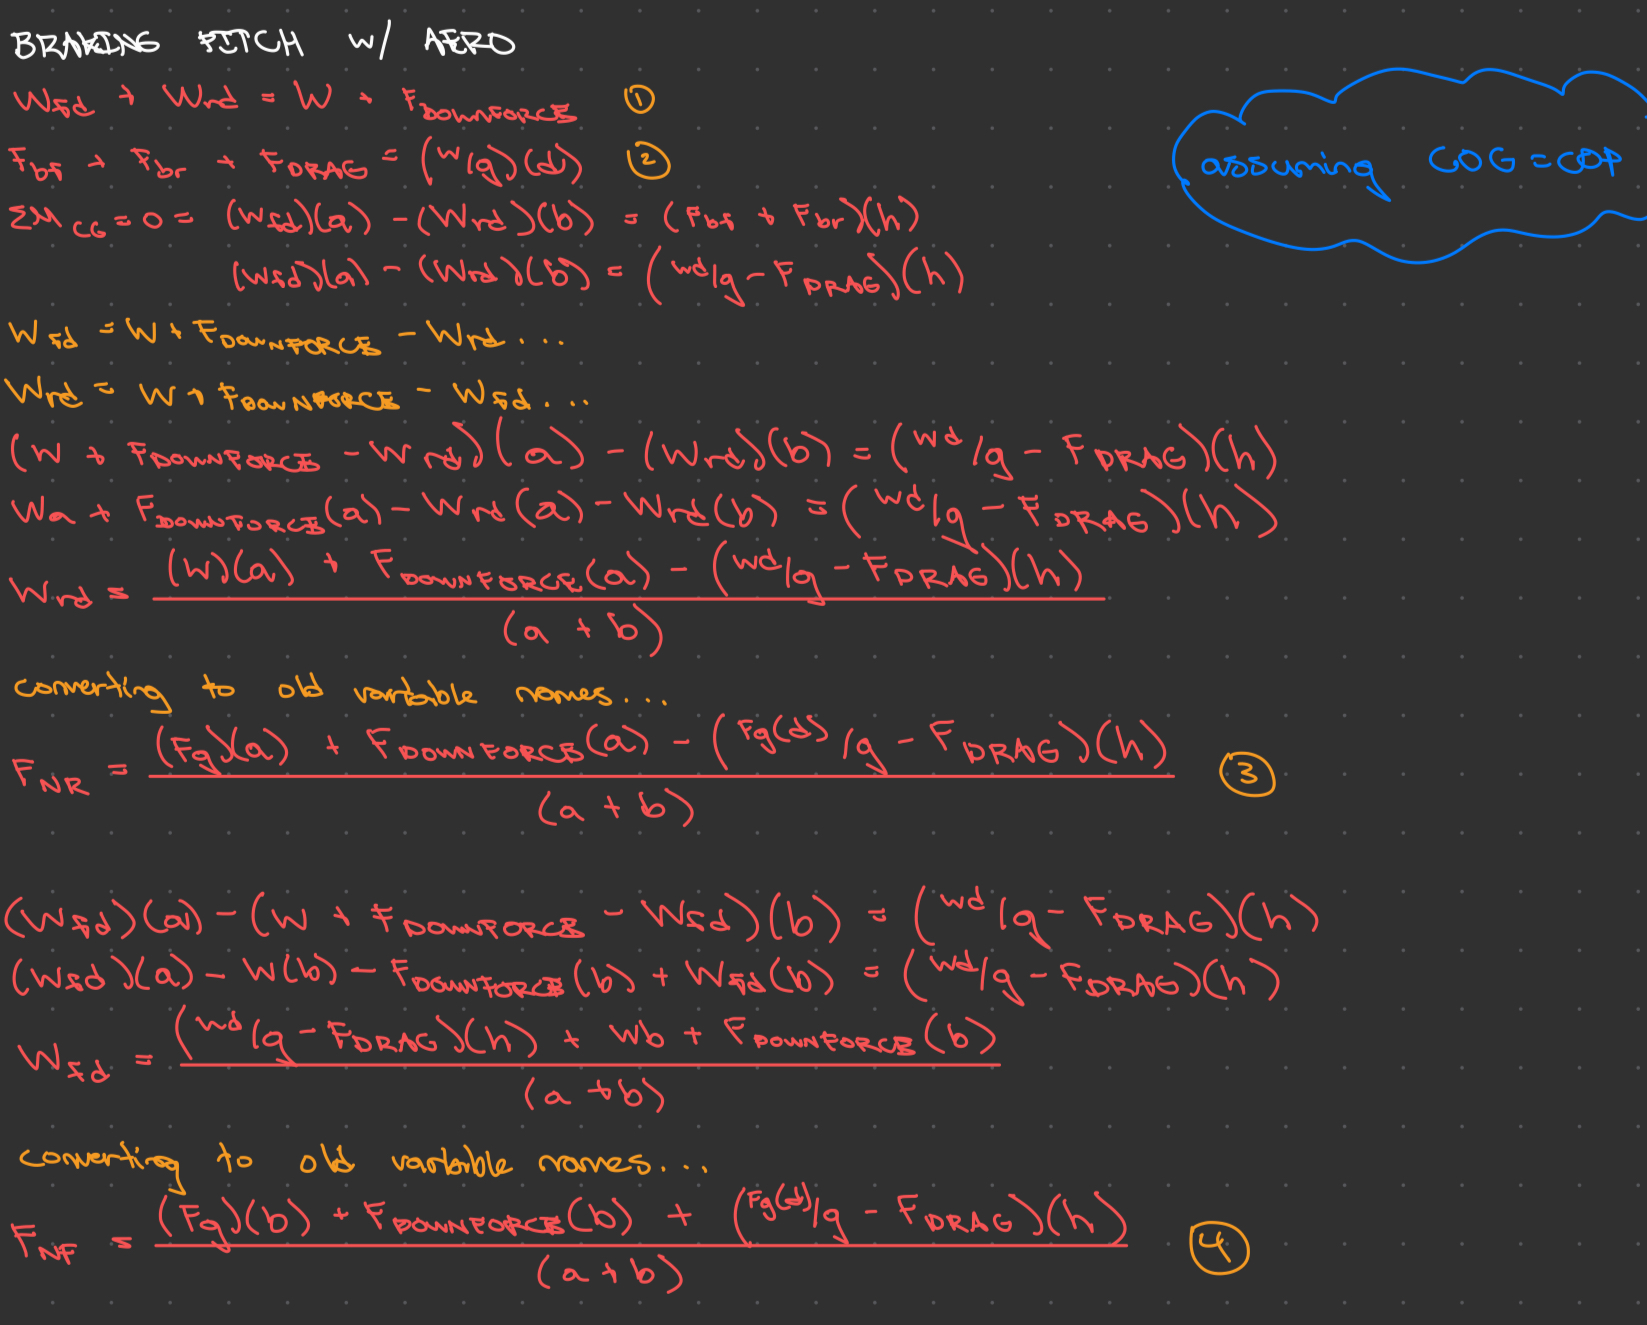 BRAKING PITCH w/ AERO
Wfd + Wrd = W + F DOWNFORCE ①
assuming COG = COP
Fbf + Fbr + F DRAG = (W/g)(d) ②
ΣM CG = 0 = (Wfd)(a) - (Wrd)(b) = (Fbf + Fbr)(h)
(Wfd)(a) - (Wrd)(b) = (wd/g - F DRAG)(h)
Wfd = W + F DOWNFORCE - Wrd...
Wrd = W + F DOWNFORCE - Wfd...
(W + F DOWNFORCE - Wrd)(a) - (Wrd)(b) = (wd/g - F DRAG)(h)
Wa + F DOWNFORCE(a) - Wrd(a) - Wrd(b) = (wd/g - F DRAG)(h)
(W)(a) + F DOWNFORCE(a) - (wd/g - F DRAG)(h)
Wrd =
(a + b)
converting to old variable names...
(Fg)(a) + F DOWNFORCE(a) - (Fg(d)/g - F DRAG)(h)
F NR = ③
(a + b)
(Wfd)(a) - (W + F DOWNFORCE - Wfd)(b) = (wd/g - F DRAG)(h)
(Wfd)(a) - W(b) - F DOWNFORCE(b) + Wfd(b) = (wd/g - F DRAG)(h)
(wd/g - F DRAG)(h) + Wb + F DOWNFORCE(b)
Wfd =
(a + b)
converting to old variable names...
(Fg)(b) + F DOWNFORCE(b) + (Fg(d)/g - F DRAG)(h)
F NF = ④
(a + b)